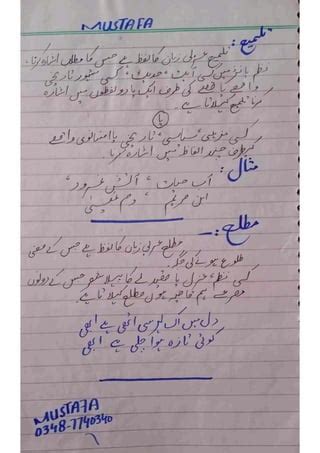 MUSTAFA
تلمیح :- تلمیح عربی زبان کا لفظ ہے جس کا مطلب اشارہ کرنا۔
نظم یا نثر میں کسی آیت، حدیث، کسی مشہور تاریخی
واقعے یا قصے کی طرف ایک یا دو لفظوں میں اشارہ
کرنا تلمیح کہلاتا ہے۔
(یا)
کسی مذہبی، سیاسی، تاریخی یا افسانوی واقعے
کی طرف چند الفاظ میں اشارہ کرنا۔
مثال :
آب حیات، آتش نمرود،
ابن مریم، دم عیسیٰ
مطلع :-
مطلع عربی زبان کا لفظ ہے جس کے معنی
طلوع ہونے کی جگہ
کسی نظم، غزل یا قصیدے کا پہلا شعر جس کے دونوں
مصرعے ہم قافیہ ہوں مطلع کہلاتا ہے۔
دل میں اک لہر سی اٹھی ہے ابھی
کوئی تازہ ہوا چلی ہے ابھی
MUSTAFA
0348-7740340